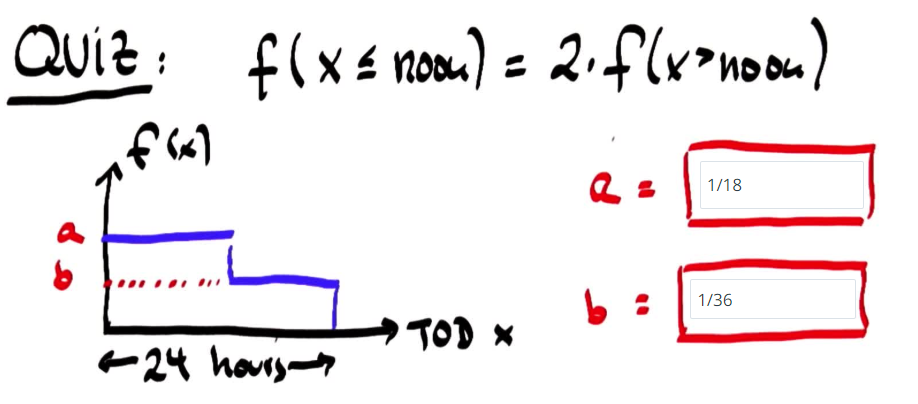 QUIZ: f(x ≤ noon) = 2·f(x>noon)
f(x)
a
b
TOD x
24 hours
a = 1/18
b = 1/36